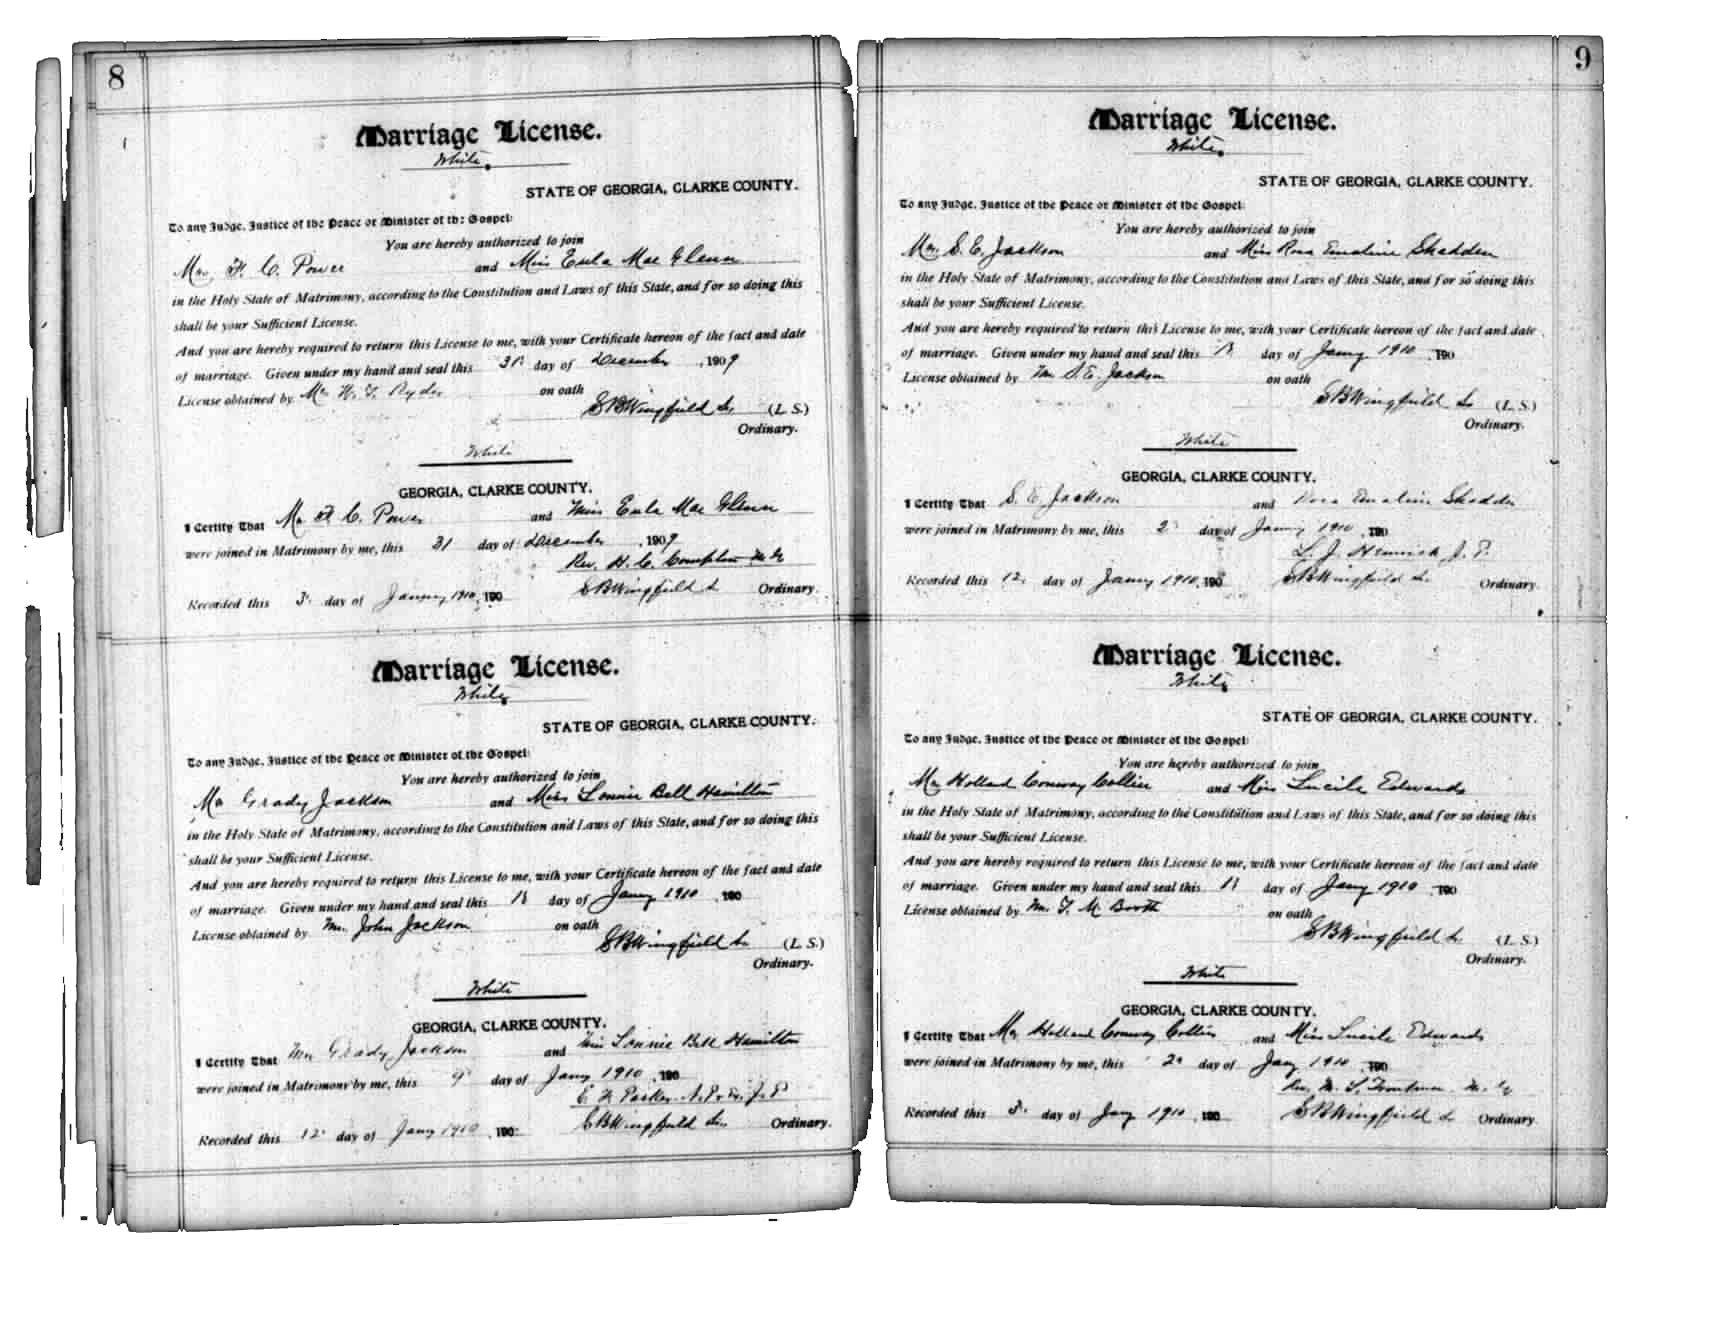 8
Marriage License.
White.
STATE OF GEORGIA, CLARKE COUNTY.
To any Judge, Justice of the Peace or Minister of the Gospel:
You are hereby authorized to join
Mr. H. C. Power and Miss Eula Mae Glenn
in the Holy State of Matrimony, according to the Constitution and Laws of this State, and for so doing this
shall be your Sufficient License.
And you are hereby required to return this License to me, with your Certificate hereon of the fact and date
of marriage. Given under my hand and seal this 31 day of December, 1909
License obtained by Mr. on oath
SBWingfield (L. S.)
Ordinary.
White
GEORGIA, CLARKE COUNTY.
I Certify That Mr H. C. Power and Miss Eula Mae Glenn
were joined in Matrimony by me, this 31 day of December, 1909
Rev. H. C.
Recorded this 3 day of January 1910, 190 SBWingfield Ordinary.
Marriage License.
White.
STATE OF GEORGIA, CLARKE COUNTY.
To any Judge, Justice of the Peace or Minister of the Gospel:
You are hereby authorized to join
Mr Grady Jackson and Miss Lonnie Bell Hamilton
in the Holy State of Matrimony, according to the Constitution and Laws of this State, and for so doing this
shall be your Sufficient License.
And you are hereby required to return this License to me, with your Certificate hereon of the fact and date
of marriage. Given under my hand and seal this day of Jany 1910, 190
License obtained by Mr. John Jackson on oath
SBWingfield (L. S.)
Ordinary.
White
GEORGIA, CLARKE COUNTY.
I Certify That Mr Grady Jackson and Miss Lonnie Bell Hamilton
were joined in Matrimony by me, this 9 day of Jany 1910, 190
Parker
Recorded this 12 day of Jany 1910, 190 SBWingfield Ordinary.
9
Marriage License.
White.
STATE OF GEORGIA, CLARKE COUNTY.
To any Judge, Justice of the Peace or Minister of the Gospel:
You are hereby authorized to join
Mr. S. E. Jackson and Miss Rosa Emaline
in the Holy State of Matrimony, according to the Constitution and Laws of this State, and for so doing this
shall be your Sufficient License.
And you are hereby required to return this License to me, with your Certificate hereon of the fact and date
of marriage. Given under my hand and seal this day of Jany 1910, 190
License obtained by Mr S. E. Jackson on oath
SBWingfield (L. S.)
Ordinary.
White
GEORGIA, CLARKE COUNTY.
I Certify That S. E. Jackson and Rosa
were joined in Matrimony by me, this 2 day of Jany 1910, 190
L. J. J. P.
Recorded this 12 day of Jany 1910, 190 SBWingfield Ordinary.
Marriage License.
White
STATE OF GEORGIA, CLARKE COUNTY.
To any Judge, Justice of the Peace or Minister of the Gospel:
You are hereby authorized to join
Mr Holland Conway Collier and Miss Lucile Edwards
in the Holy State of Matrimony, according to the Constitution and Laws of this State, and for so doing this
shall be your Sufficient License.
And you are hereby required to return this License to me, with your Certificate hereon of the fact and date
of marriage. Given under my hand and seal this day of Jany 1910, 190
License obtained by Mr. T. M. Booth on oath
SBWingfield (L. S.)
Ordinary.
White
GEORGIA, CLARKE COUNTY.
I Certify That Mr Holland Conway Collier and Miss Lucile Edwards
were joined in Matrimony by me, this 2 day of Jany 1910, 190
Rev. M.
Recorded this 3 day of Jany 1910, 190 SBWingfield Ordinary.